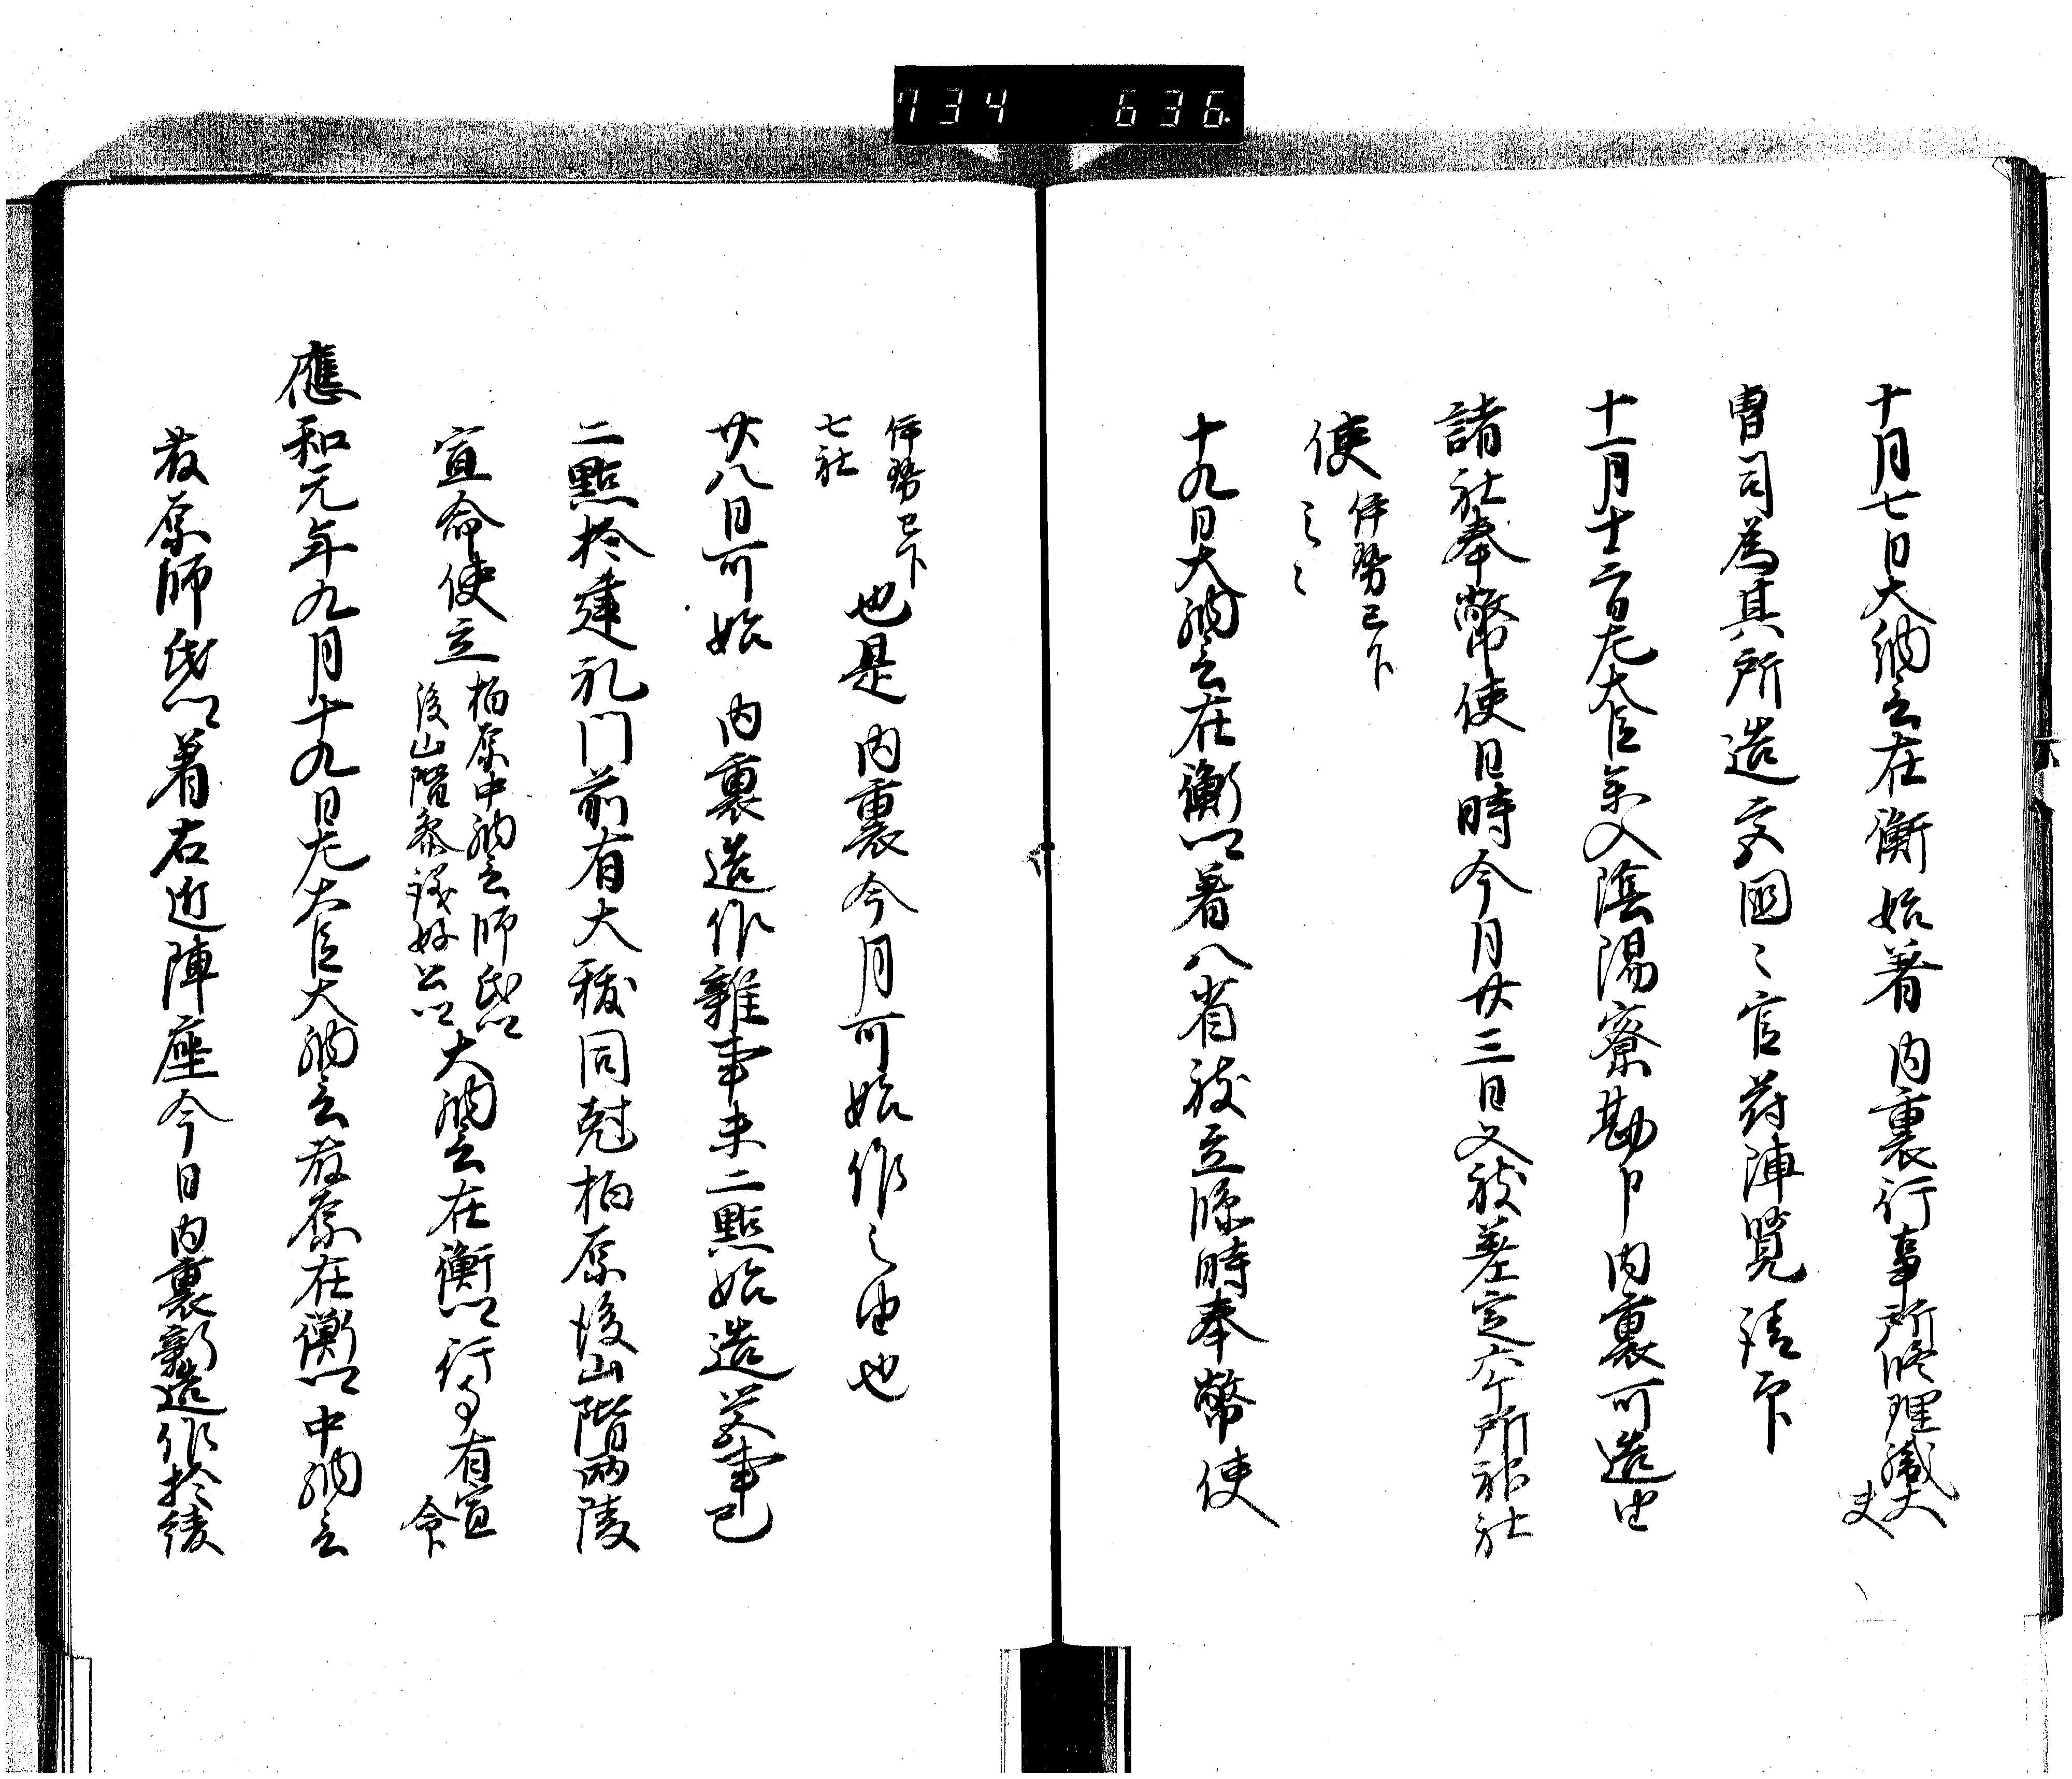 734 636
十月七日大納言在衡始著内裏行事所修理職大夫
曹司為其所造交国々官苻陣覧請印
十一月十二日左大臣参入陰陽寮勘申内裏可造由
諸社奉幣使日時今月廿三日又被差定六ケ所神社
使 伊勢已下
云々
十九日大納言在衡卿著八省被立臨時奉幣使
伊勢已下
七社
也是内裏今月可始作之由也
廿八日可始 内裏造作雑事未二點始造茲事已
二點於建礼門前有大祓同剋柏原後山階両陵
宣命使立 柏原中納言師氏卿
後山階参議好古卿
大納言在衡卿行事有宣命下
應和元年九月十九日左大臣大納言藤原在衡卿中納言
藤原師氏卿着右近陣座今日内裏新造作於綾